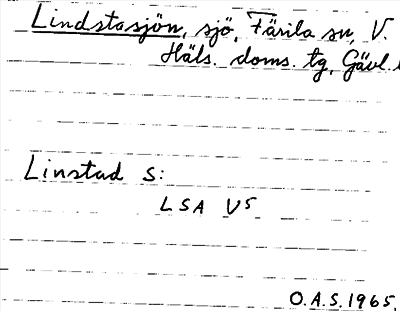 Lindstasjön, sjö, Färila sn, V.
Häls. doms. tg, Gävl.
Linstad S:
LSA V5
O.A.S. 1965.